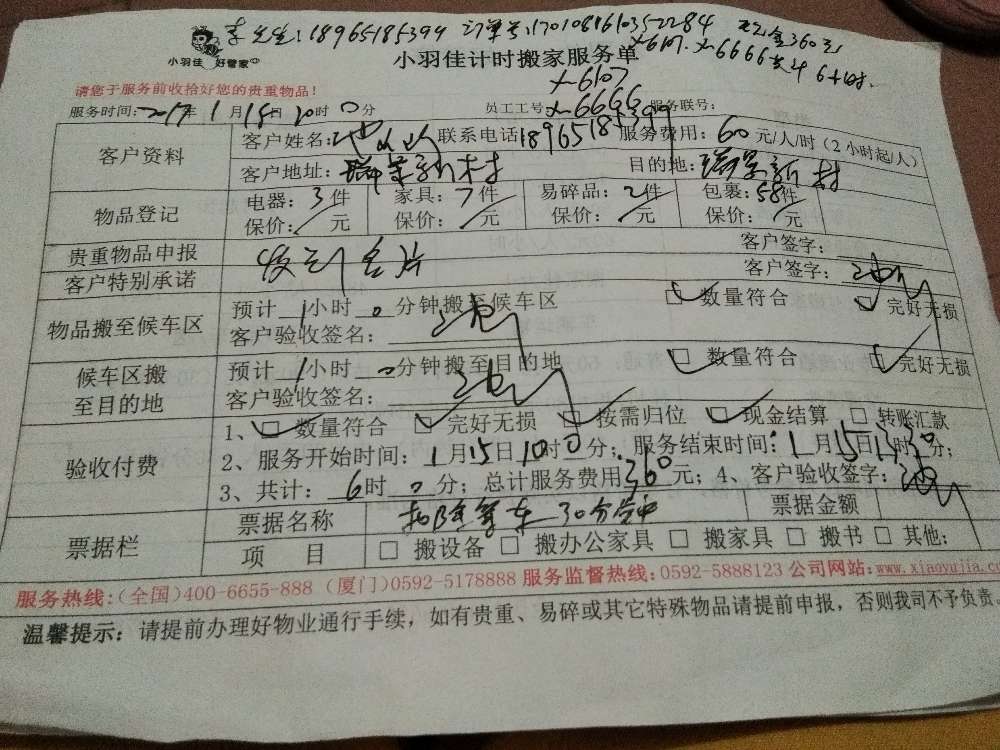 李先生:18965185394 订单号:170108161035 2284 现金360元
小羽佳 好管家 小羽佳计时搬家服务单 X-6107. X-6666共计6小时.
请您于服务前收拾好您的贵重物品! X-6107
服务时间:2017年1月15日10时0分 员工工号:X-6666 服务联号:
客户资料 客户姓名: 联系电话18965185394 服务费用:60元/人/时(2小时起/人)
客户地址:瑞景新村 目的地:瑞景新村
物品登记 电器:3件 家具:7件 易碎品:2件 包裹:58件
保价:/元 保价:/元 保价:/元 保价:/元
贵重物品申报 客户签字:
客户特别承诺 发定位名片 客户签字:
物品搬至候车区 预计1小时0分钟搬至候车区 ☑数量符合 ☑完好无损
客户验收签名:
候车区搬至目的地 预计1小时0分钟搬至目的地 ☑数量符合 ☑完好无损
客户验收签名:
验收付费 1、☑数量符合 ☑完好无损 ☑按需归位 ☑现金结算 □转账汇款
2、服务开始时间:1月15日10时0分;服务结束时间:1月15日13时30分;
3、共计:6时0分;总计服务费用:360元;4、客户验收签字:
票据栏 票据名称 扣除等车30分钟 票据金额
项 目 □搬设备 □搬办公家具 □搬家具 □搬书 □其他:
服务热线:(全国)400-6655-888 (厦门)0592-5178888 服务监督热线:0592-5888123 公司网站:www.xiaoyujia.com
温馨提示:请提前办理好物业通行手续,如有贵重、易碎或其它特殊物品请提前申报,否则我司不予负责。